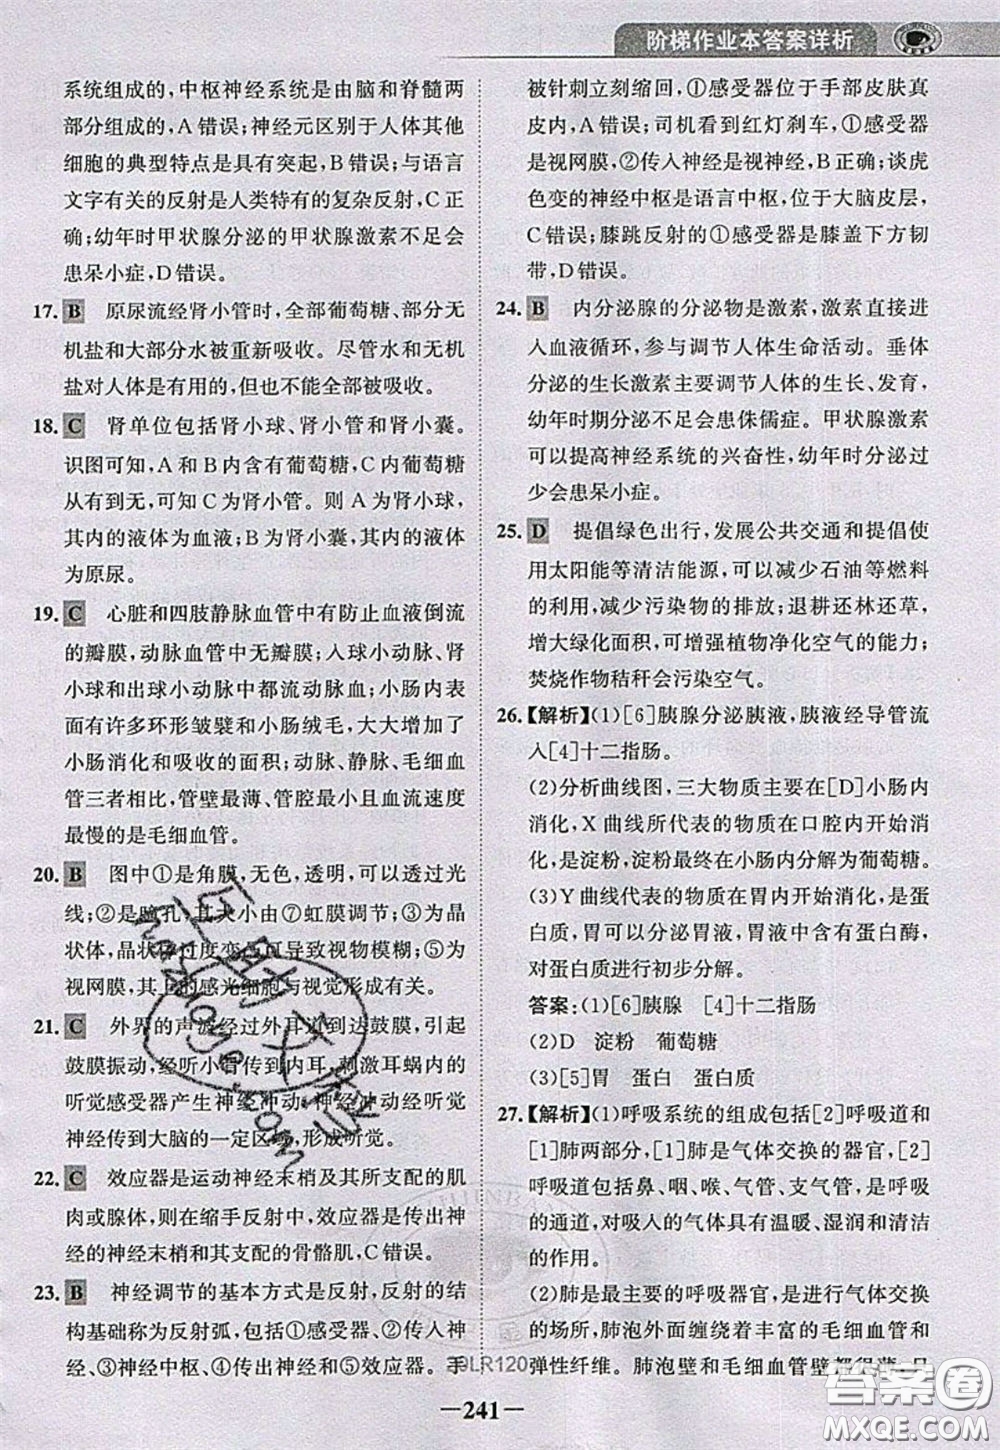 阶梯作业本答案详析
系统组成的,中枢神经系统是由脑和脊髓两
部分组成的,A错误;神经元区别于人体其他
细胞的典型特点是具有突起,B错误;与语言
文字有关的反射是人类特有的复杂反射,C正
确;幼年时甲状腺分泌的甲状腺激素不足会
患呆小症,D错误。
17. B 原尿流经肾小管时,全部葡萄糖、部分无
机盐和大部分水被重新吸收。尽管水和无机
盐对人体是有用的,但不能全部被吸收。
18. C 肾单位包括肾小球、肾小管和肾小囊。
识图可知,A和B内含有葡萄糖,C内葡萄糖
从有到无,可知C为肾小管。则A为肾小球,
其内的液体为血液;B为肾小囊,其内的液体
为原尿。
19. C 心脏和四肢静脉血管中有防止血液倒流
的瓣膜,动脉血管中无瓣膜;入球小动脉、肾
小球和出球小动脉中都流动脉血;小肠内表
面有许多环形皱襞和小肠绒毛,大大增加了
小肠消化和吸收的面积;动脉、静脉、毛细血
管三者相比,管壁最薄、管腔最小且血流速度
最慢的是毛细血管。
20. B 图中①是角膜,无色,透明,可以透过光
线;②是瞳孔,其大小由⑦虹膜调节;③为晶
状体,晶状体过度变凸可导致视物模糊;⑤为
视网膜,其上的感光细胞与视觉形成有关。
21. C 外界的声波经过外耳道到达鼓膜,引起
鼓膜振动,经听小骨传到内耳,刺激耳蜗内的
听觉感受器产生神经冲动,神经冲动经听觉
神经传到大脑的一定区域,形成听觉。
22. C 效应器是运动神经末梢及其所支配的肌
肉或腺体,则在缩手反射中,效应器是传出神
经的神经末梢和其支配的骨骼肌,C错误。
23. B 神经调节的基本方式是反射,反射的结
构基础称为反射弧,包括①感受器、②传入神
经、③神经中枢、④传出神经和⑤效应器。手
被针刺立刻缩回,①感受器位于手部皮肤真
皮内,A错误;司机看到红灯刹车,①感受器
是视网膜,②传入神经是视神经,B正确;谈虎
色变的神经中枢是语言中枢,位于大脑皮层,
C错误;膝跳反射的①感受器在膝盖下方韧
带,D错误。
24. B 内分泌腺的分泌物是激素,激素直接进
入血液循环,参与调节人体生命活动。垂体
分泌的生长激素主要调节人体的生长、发育,
幼年时期分泌不足会患侏儒症。甲状腺激素
可以提高神经系统的兴奋性,幼年时分泌过
少会患呆小症。
25. D 提倡绿色出行,发展公共交通和提倡使
用太阳能等清洁能源,可以减少石油等燃料
的利用,减少污染物的排放;退耕还林还草,
增大绿化面积,可增强植物净化空气的能力;
焚烧作物秸秆会污染空气。
26.【解析】(1)[6]胰腺分泌胰液,胰液经导管流
入[4]十二指肠。
(2)分析曲线图,三大物质主要在[D]小肠内
消化,X曲线所代表的物质在口腔内开始消
化,是淀粉,淀粉最终在小肠内分解为葡萄糖。
(3)Y曲线代表的物质在胃内开始消化,是蛋
白质,胃可以分泌胃液,胃液中含有蛋白酶,
对蛋白质进行初步分解。
答案:(1)[6]胰腺 [4]十二指肠
(2)D 淀粉 葡萄糖
(3)[5]胃 蛋白 蛋白质
27.【解析】(1)呼吸系统的组成包括[2]呼吸道和
[1]肺两部分,[1]肺是气体交换的器官,[2]
呼吸道包括鼻、咽、喉、气管、支气管,是气体
的通道,对吸入的气体具有温暖、湿润和清洁
的作用。
(2)肺是主要的呼吸器官,是进行气体交换的
场所,肺泡外面缠绕着丰富的毛细血管和
弹性纤维。肺泡壁和毛细血管壁都很薄,只
20LR120
241
答案圈
MXQE.COM